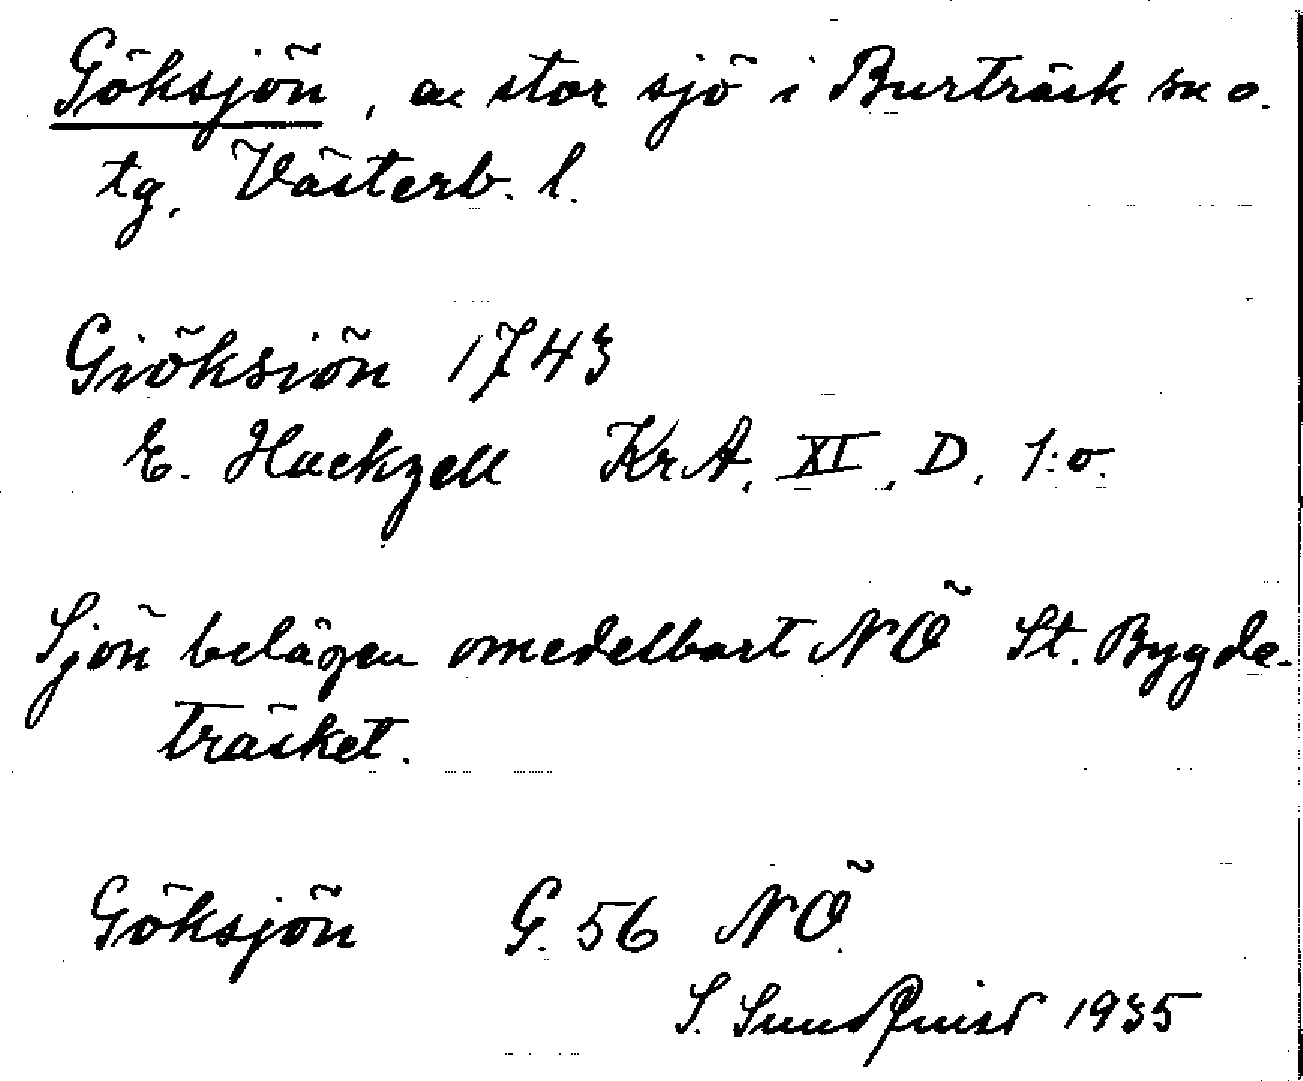 Göksjön, en stor sjö i Burträsk sn o.
tg, Västerb. l.
Giöksiön 1743
E. Hackzell KrA, XI, D, 1:o.
Sjön belägen omedelbart NÖ St. Bygde-
träsket.
Göksjön G. 56 NÖ.
S. Sundqvist 1935